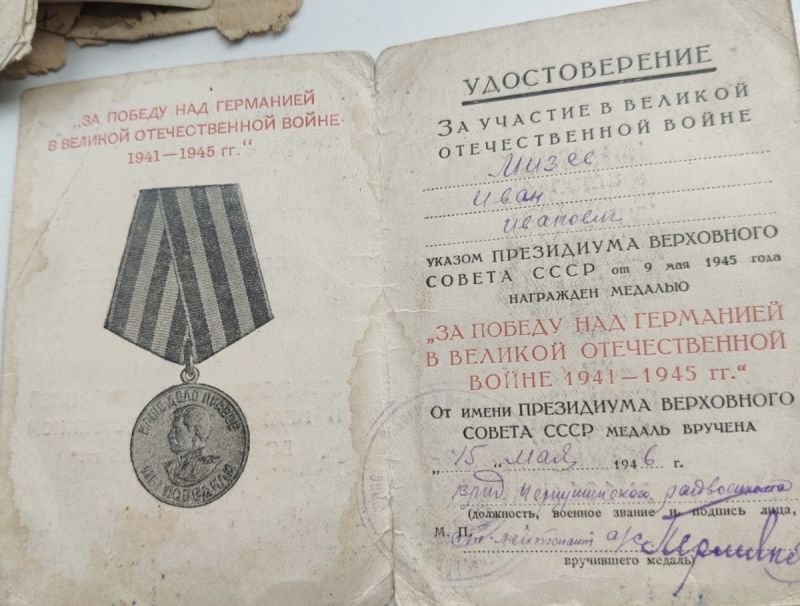 „ЗА ПОБЕДУ НАД ГЕРМАНИЕЙ
В ВЕЛИКОЙ ОТЕЧЕСТВЕННОЙ ВОЙНЕ
1941—1945 гг.“
НАШЕ ДЕЛО ПРАВОЕ
МЫ ПОБЕДИЛИ
УДОСТОВЕРЕНИЕ
ЗА УЧАСТИЕ В ВЕЛИКОЙ
ОТЕЧЕСТВЕННОЙ ВОЙНЕ
Мизёв
Иван
Иванович
УКАЗОМ ПРЕЗИДИУМА ВЕРХОВНОГО
СОВЕТА СССР от 9 мая 1945 года
НАГРАЖДЕН МЕДАЛЬЮ
„ЗА ПОБЕДУ НАД ГЕРМАНИЕЙ
В ВЕЛИКОЙ ОТЕЧЕСТВЕННОЙ
ВОЙНЕ 1941—1945 гг.“
ОТ ИМЕНИ ПРЕЗИДИУМА ВЕРХОВНОГО
СОВЕТА СССР МЕДАЛЬ ВРУЧЕНА
„15„ мая 1946 г.
врид Чернушинского райвоенкома
(должность, военное звание и подпись лица,
М. П. Ст. лейтенант а/с
вручившего медаль)